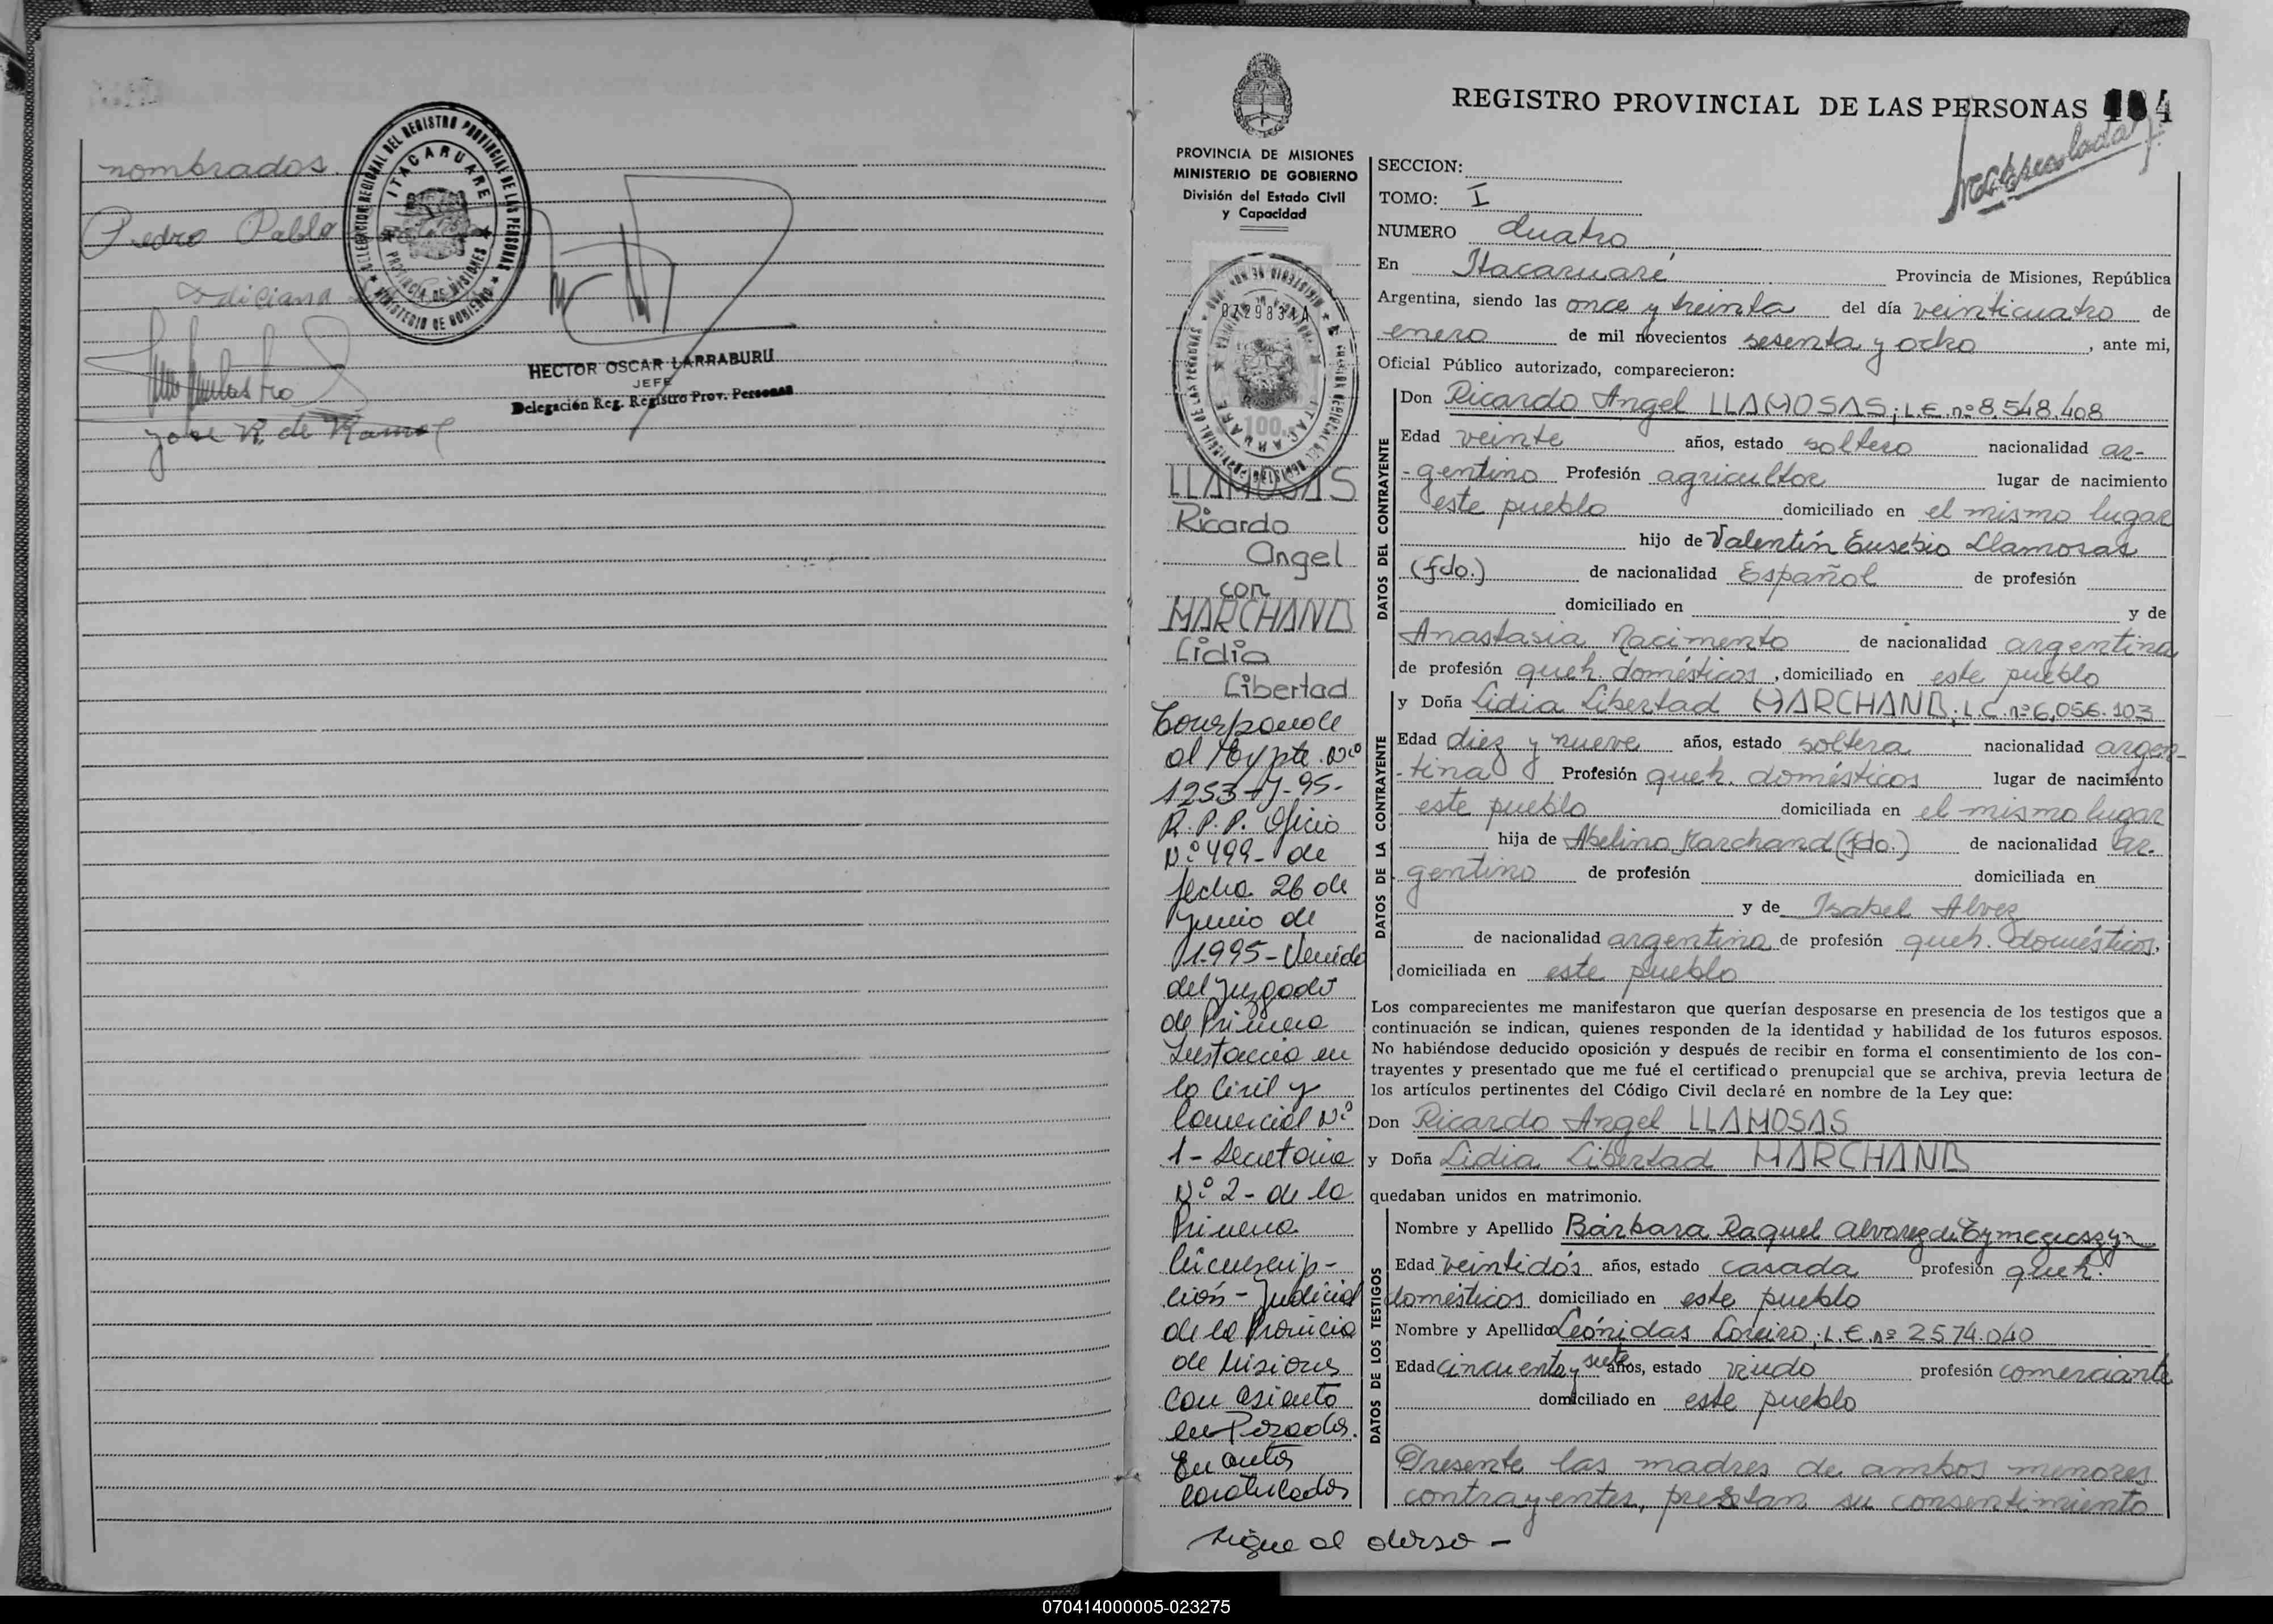 nombrados.
Pedro Pablo
DELEGACION REGIONAL DEL REGISTRO PROVINCIAL DE LAS PERSONAS
ITACARUARE
PROVINCIA DE MISIONES
MINISTERIO DE GOBIERNO
HECTOR OSCAR LARRABURU
JEFE
Delegación Reg. Registro Prov. Personas
Jose R. de Ramos
REGISTRO PROVINCIAL DE LAS PERSONAS
PROVINCIA DE MISIONES
MINISTERIO DE GOBIERNO
División del Estado Civil
y Capacidad
072983 A
100
LLAMOSAS
Ricardo
Angel
con
MARCHAND
Lidia
Libertad
Corresponde
al Expte. Nº
1253-J-95-
R.P.P. Oficio
Nº 499- de
fecha 26 de
junio de
1.995- Venido
del Juzgado
de Primera
Instancia en
lo Civil y
Comercial Nº
1- Secretaria
Nº 2- de la
Primera
Circunscrip-
ción - Judicial
de la Provincia
de Misiones
con asiento
en Posadas.
En autos
caratulados
Sigue al dorso -
SECCION:
TOMO: I
NUMERO cuatro
En Itacaruaré Provincia de Misiones, República
Argentina, siendo las once y treinta del día veinticuatro de
enero de mil novecientos sesenta y ocho, ante mi,
Oficial Público autorizado, comparecieron:
DATOS DEL CONTRAYENTE
Don Ricardo Angel LLAMOSAS; L.E. nº 8.548.408
Edad veinte años, estado soltero nacionalidad ar-
-gentino Profesión agricultor lugar de nacimiento
este pueblo domiciliado en el mismo lugar
hijo de Valentín Eusebio Llamosas
(fdo.) de nacionalidad Español de profesión
domiciliado en y de
Anastasia Nacimento de nacionalidad argentina
de profesión queh. domésticos, domiciliado en este pueblo
DATOS DE LA CONTRAYENTE
y Doña Lidia Libertad MARCHAND; L.C. nº 6,056.103
Edad diez y nueve años, estado soltera nacionalidad argen-
-tina Profesión queh. domésticos lugar de nacimiento
este pueblo domiciliada en el mismo lugar
hija de Abelino Marchand (fdo.) de nacionalidad ar-
gentino de profesión domiciliada en
y de Isabel Alvez
de nacionalidad argentina de profesión queh. domésticos,
domiciliada en este pueblo
Los comparecientes me manifestaron que querían desposarse en presencia de los testigos que a
continuación se indican, quienes responden de la identidad y habilidad de los futuros esposos.
No habiéndose deducido oposición y después de recibir en forma el consentimiento de los con-
trayentes y presentado que me fué el certificado prenupcial que se archiva, previa lectura de
los artículos pertinentes del Código Civil declaré en nombre de la Ley que:
Don Ricardo Angel LLAMOSAS
y Doña Lidia Libertad MARCHAND
quedaban unidos en matrimonio.
DATOS DE LOS TESTIGOS
Nombre y Apellido Bárbara Raquel Alvarez de
Edad veintidós años, estado casada profesión queh.
domésticos domiciliado en este pueblo
Nombre y Apellido Leónidas Loreiro; L.E. nº 2574.040
Edad cincuenta y siete años, estado viudo profesión comerciante
domiciliado en este pueblo
Presente las madres de ambos menores
contrayentes, prestan su consentimiento
070414000005-023275